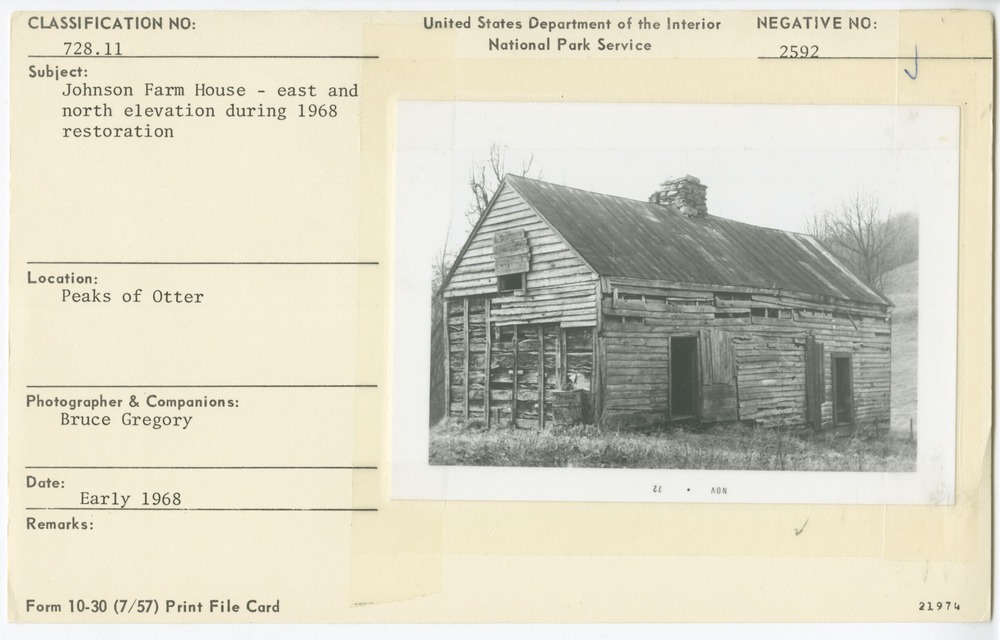 CLASSIFICATION NO:
728.11
United States Department of the Interior
National Park Service
NEGATIVE NO:
2592
Subject:
Johnson Farm House - east and
north elevation during 1968
restoration
Location:
Peaks of Otter
Photographer & Companions:
Bruce Gregory
Date:
Early 1968
Remarks:
NOV • 72
Form 10-30 (7/57) Print File Card
21974